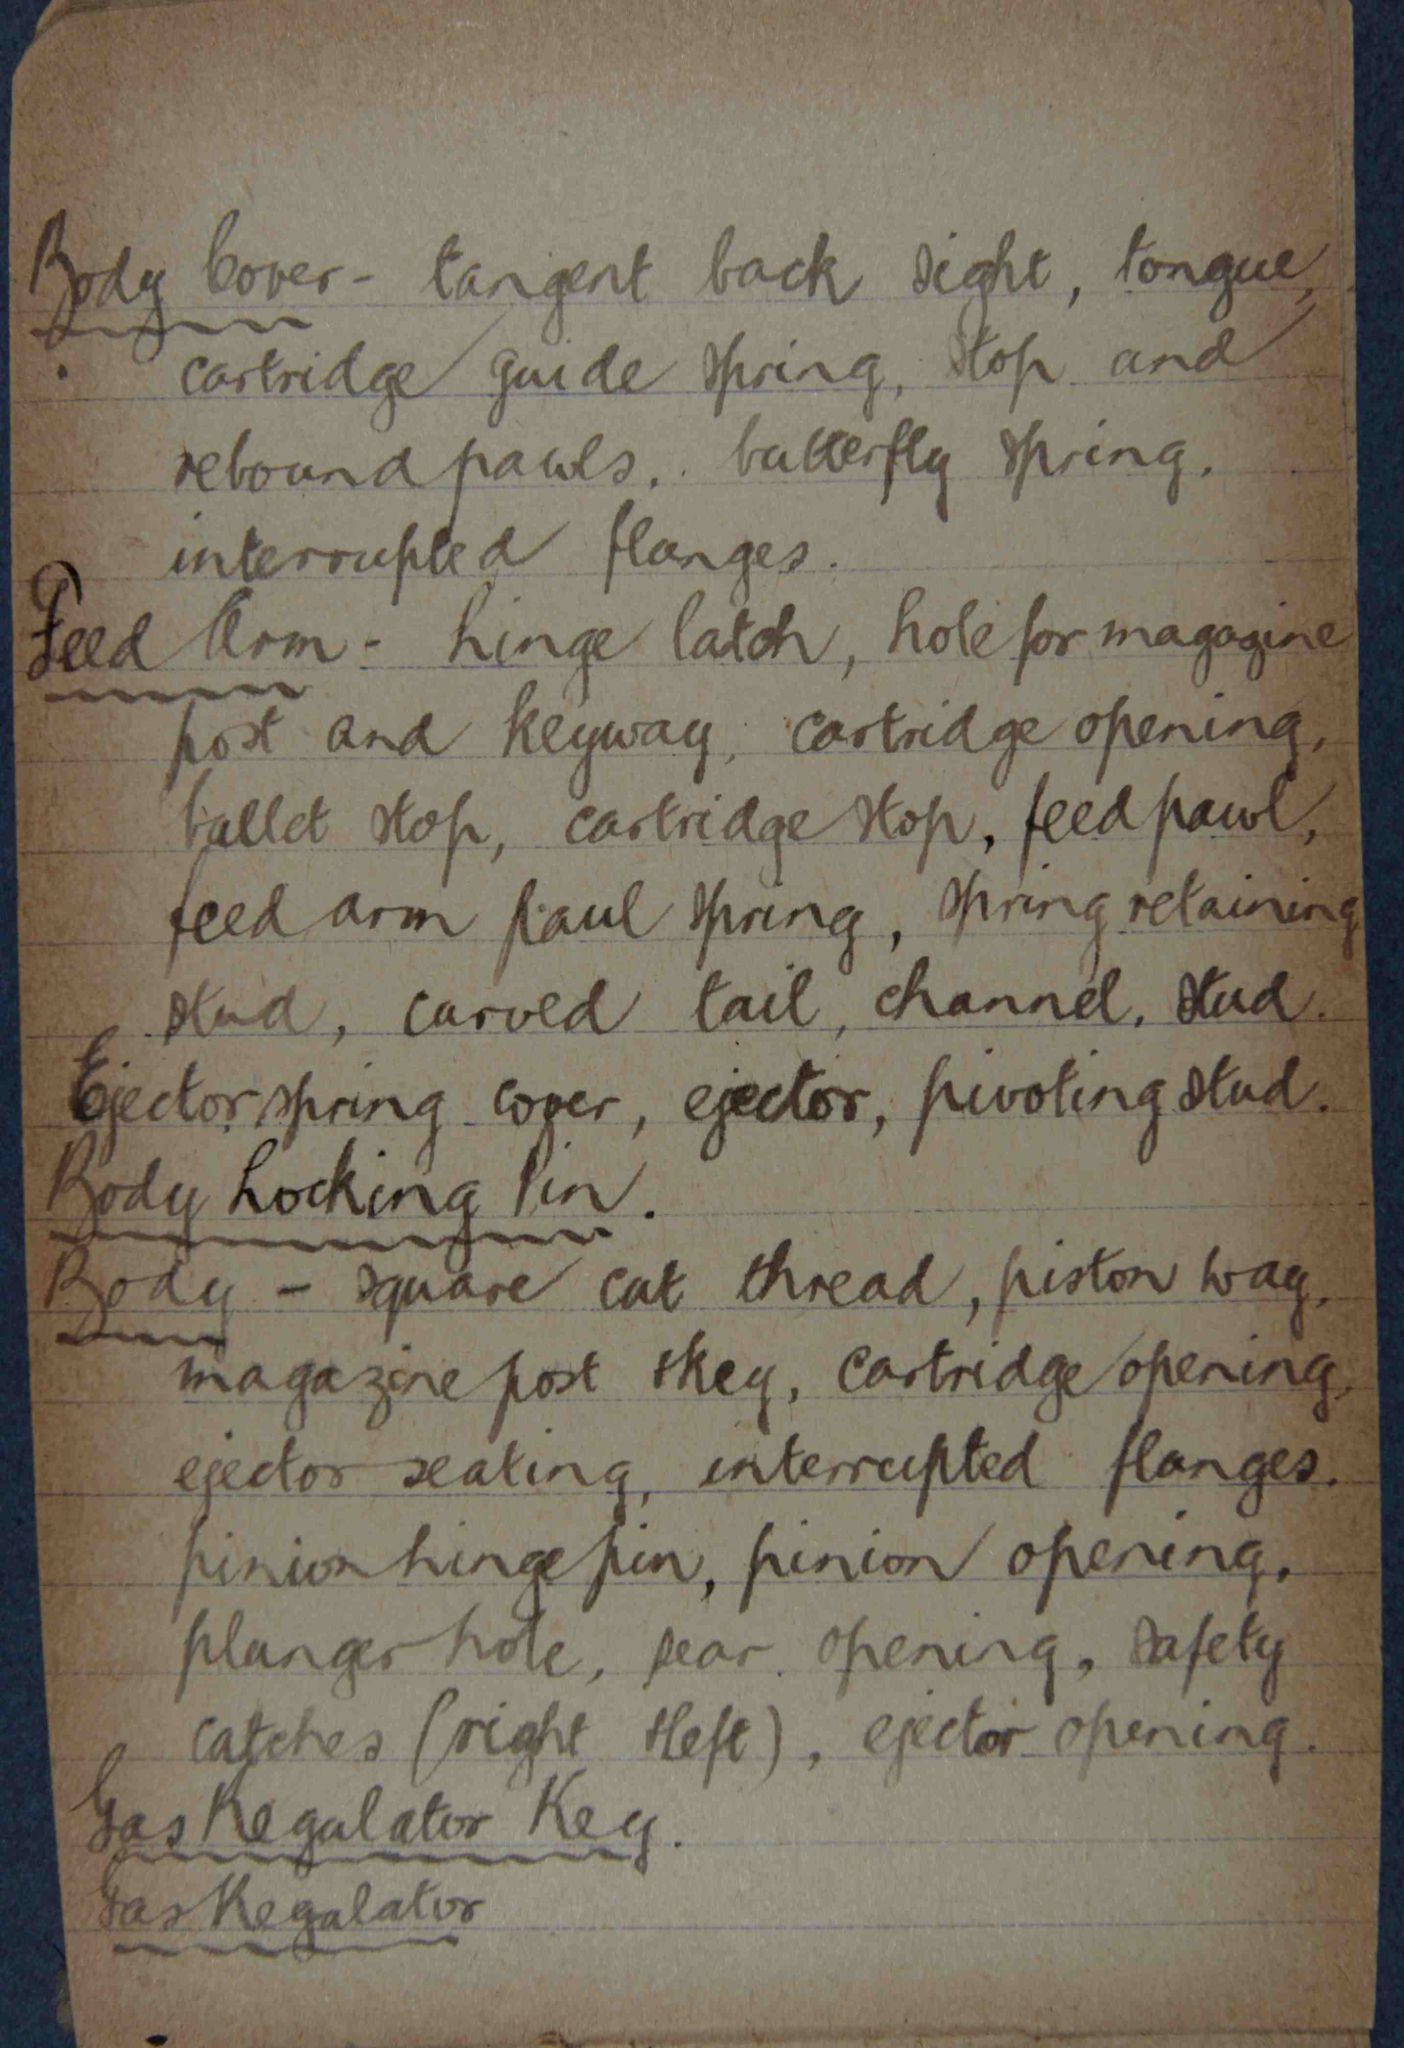 Body Cover - tangent back sight, tongue,
cartridge guide spring, stop and
rebound pawls, butterfly spring,
interrupted flanges.
Feed Arm - hinge latch, hole for magazine
post and keyway, cartridge opening,
bullet stop, cartridge stop, feed pawl,
feed arm paul spring, spring retaining
stud, curved tail, channel, stud.
Ejector spring cover, ejector, pivoting stud.
Body Locking Pin.
Body - square cut thread, piston way,
magazine post & key, cartridge opening,
ejector seating, interrupted flanges.
pinion hinge pin, pinion opening,
plunger hole, sear opening, safety
catches (right & left), ejector opening.
Gas Regulator Key.
Gas Regulator